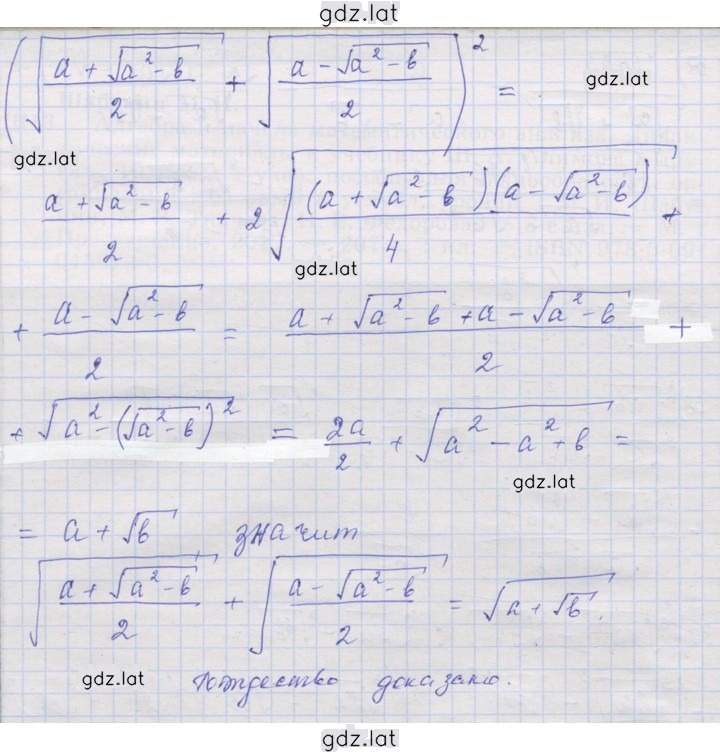 gdz.lat
(√((a + √(a² - в))/2) + √((a - √(a² - в))/2))² =
gdz.lat
gdz.lat
(a + √(a² - в))/2 + 2√(((a + √(a² - в))(a - √(a² - в)))/4) +
gdz.lat
+ (a - √(a² - в))/2 = (a + √(a² - в) + a - √(a² - в))/2 +
+ √(a² - (√(a² - в))²) = 2a/2 + √(a² - a² + в) =
gdz.lat
= a + √в, значит
√((a + √(a² - в))/2) + √((a - √(a² - в))/2) = √(a + √в).
gdz.lat
тождество доказано.
gdz.lat